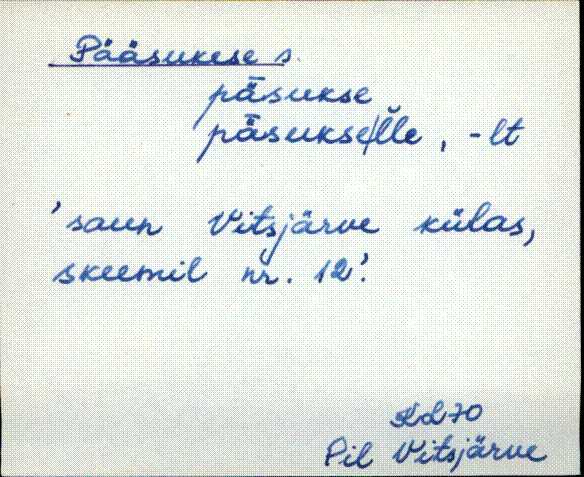 Pääsukese s.
päsukse
päsukse/l̆le, -lt
'saun Vitsjärve külas,
skeemil nr. 12'.
Kd 70
Pil Vitsjärve